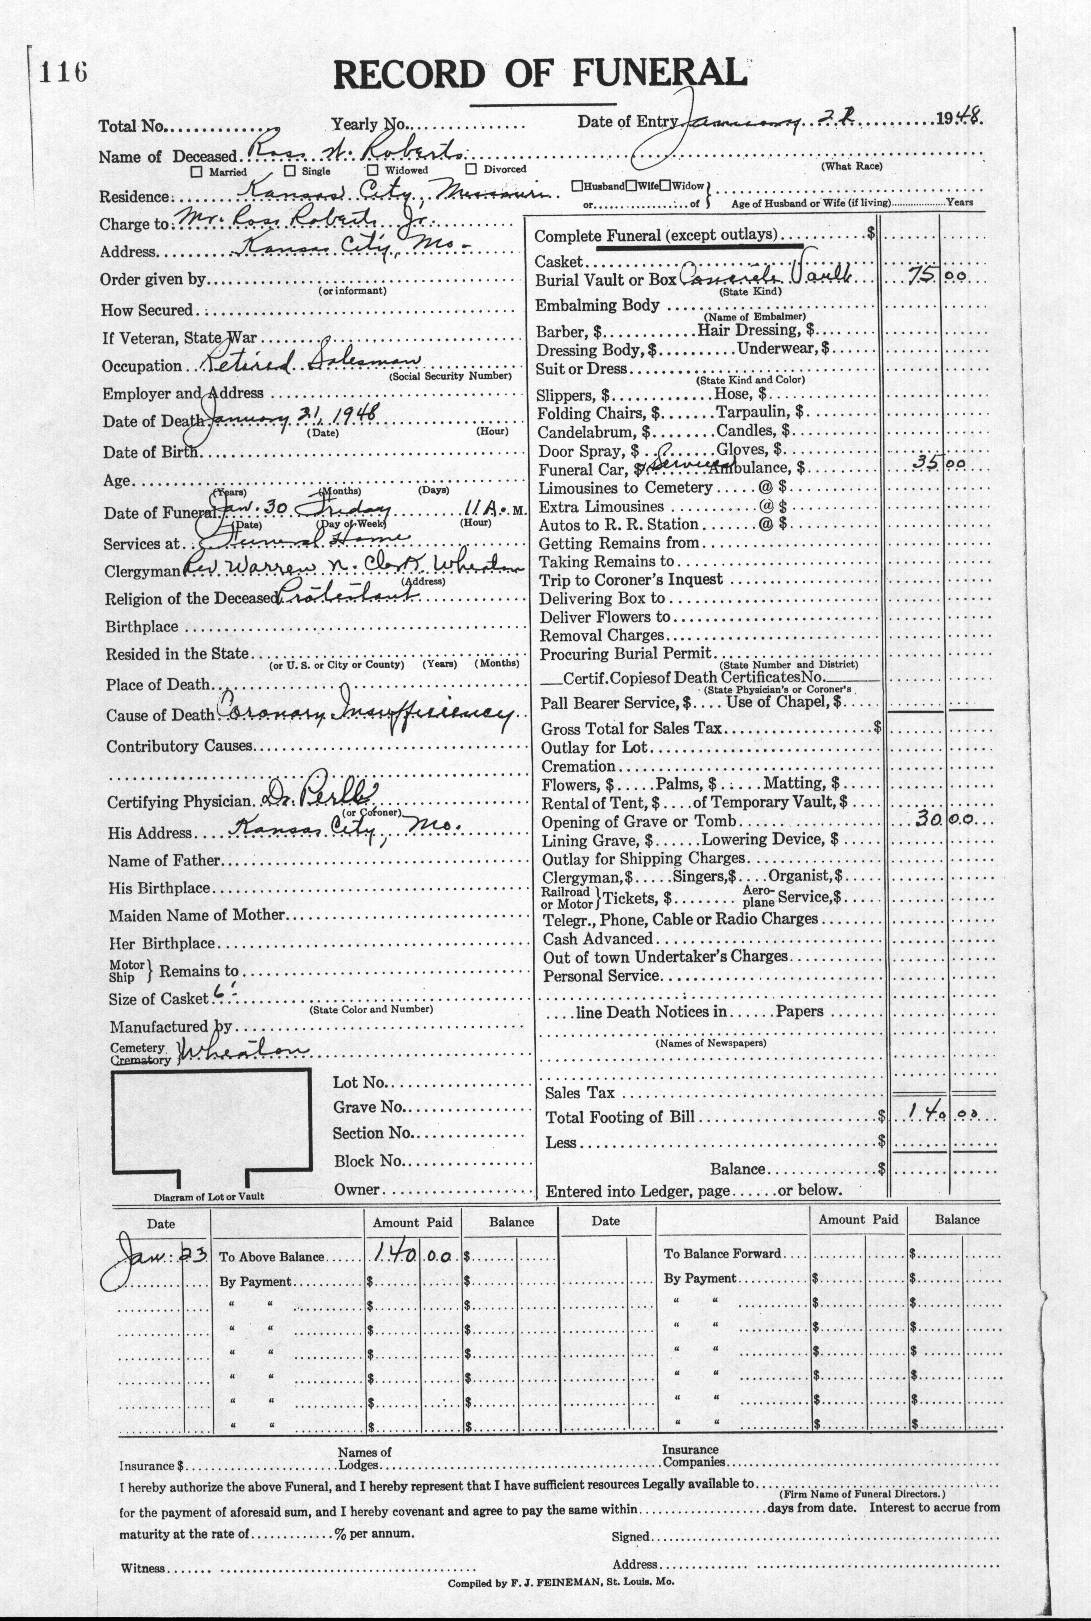 116
RECORD OF FUNERAL
Total No.............. Yearly No............... Date of Entry January 22 1948.
Name of Deceased Ross W. Roberts
(What Race)
☐ Married ☐ Single ☐ Widowed ☐ Divorced
Residence: Kansas City, Missouri ☐Husband☐Wife☐Widow
or.................of Age of Husband or Wife (if living)..................Years
Charge to: Mr. Ross Roberts Jr.
Address Kansas City, Mo.
Order given by
(or informant)
How Secured
If Veteran, State War
Occupation Retired Salesman
(Social Security Number)
Employer and Address
Date of Death January 21, 1948
(Date) (Hour)
Date of Birth
Age
(Years) (Months) (Days)
Date of Funeral Jan. 30 Friday 11 A. M.
(Date) (Day of Week) (Hour)
Services at Funeral Home
Clergyman Rev Warren N. Clark Wheaton
(Address)
Religion of the Deceased Protestant
Birthplace
Resided in the State
(or U. S. or City or County) (Years) (Months)
Place of Death
Cause of Death Coronary Insufficiency
Contributory Causes
Certifying Physician Dr.
(or Coroner)
His Address Kansas City, Mo.
Name of Father
His Birthplace
Maiden Name of Mother
Her Birthplace
Motor
Ship Remains to
Size of Casket 6'
(State Color and Number)
Manufactured by
Cemetery
Crematory Wheaton
Lot No.
Grave No.
Section No.
Block No.
Owner
Diagram of Lot or Vault
Complete Funeral (except outlays) $
Casket
Burial Vault or Box Concrete Vault 75 00
(State Kind)
Embalming Body
(Name of Embalmer)
Barber, $ Hair Dressing, $
Dressing Body, $ Underwear, $
Suit or Dress
(State Kind and Color)
Slippers, $ Hose, $
Folding Chairs, $ Tarpaulin, $
Candelabrum, $ Candles, $
Door Spray, $ Gloves, $
Funeral Car, $ Services Ambulance, $ 35 00
Limousines to Cemetery @ $
Extra Limousines @ $
Autos to R. R. Station @ $
Getting Remains from
Taking Remains to
Trip to Coroner's Inquest
Delivering Box to
Deliver Flowers to
Removal Charges
Procuring Burial Permit
(State Number and District)
Certif. Copies of Death Certificates No.
(State Physician's or Coroner's
Pall Bearer Service, $ Use of Chapel, $
Gross Total for Sales Tax $
Outlay for Lot
Cremation
Flowers, $ Palms, $ Matting, $
Rental of Tent, $ of Temporary Vault, $
Opening of Grave or Tomb 30 00
Lining Grave, $ Lowering Device, $
Outlay for Shipping Charges
Clergyman, $ Singers, $ Organist, $
Railroad
or Motor Tickets, $ Aero-
plane Service, $
Telegr., Phone, Cable or Radio Charges
Cash Advanced
Out of town Undertaker's Charges
Personal Service
line Death Notices in Papers
(Names of Newspapers)
Sales Tax
Total Footing of Bill $ 140 00
Less $
Balance $
Entered into Ledger, page......or below.
Date Amount Paid Balance Date Amount Paid Balance
Jan. 23 To Above Balance 140 00 $ To Balance Forward $
By Payment $ $ By Payment $ $
“ “ $ $ “ “ $ $
“ “ $ $ “ “ $ $
“ “ $ $ “ “ $ $
“ “ $ $ “ “ $ $
“ “ $ $ “ “ $ $
“ “ $ $ “ “ $ $
Insurance $ Names of
Lodges Insurance
Companies
I hereby authorize the above Funeral, and I hereby represent that I have sufficient resources Legally available to
(Firm Name of Funeral Directors.)
for the payment of aforesaid sum, and I hereby covenant and agree to pay the same within days from date. Interest to accrue from
maturity at the rate of % per annum. Signed
Witness Address
Compiled by F. J. FEINEMAN, St. Louis, Mo.